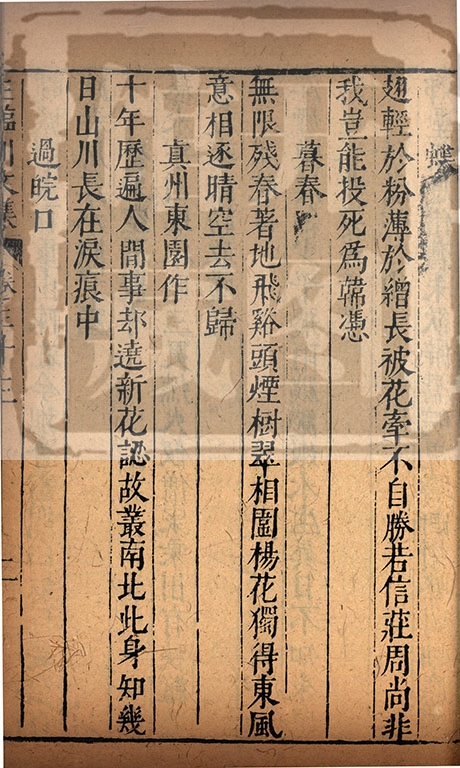 蝶
翅輕於粉薄於繒長被花牽不自勝若信莊周尚非
我豈能投死為韓憑
暮春
無限殘春著地飛谿頭煙樹翠相圍楊花獨得東風
意相逐晴空去不歸
真州東園作
十年歷遍人間事却遶新花認故叢南北此身知幾
日山川長在淚痕中
過皖口
臨川文集
卷三十三
二